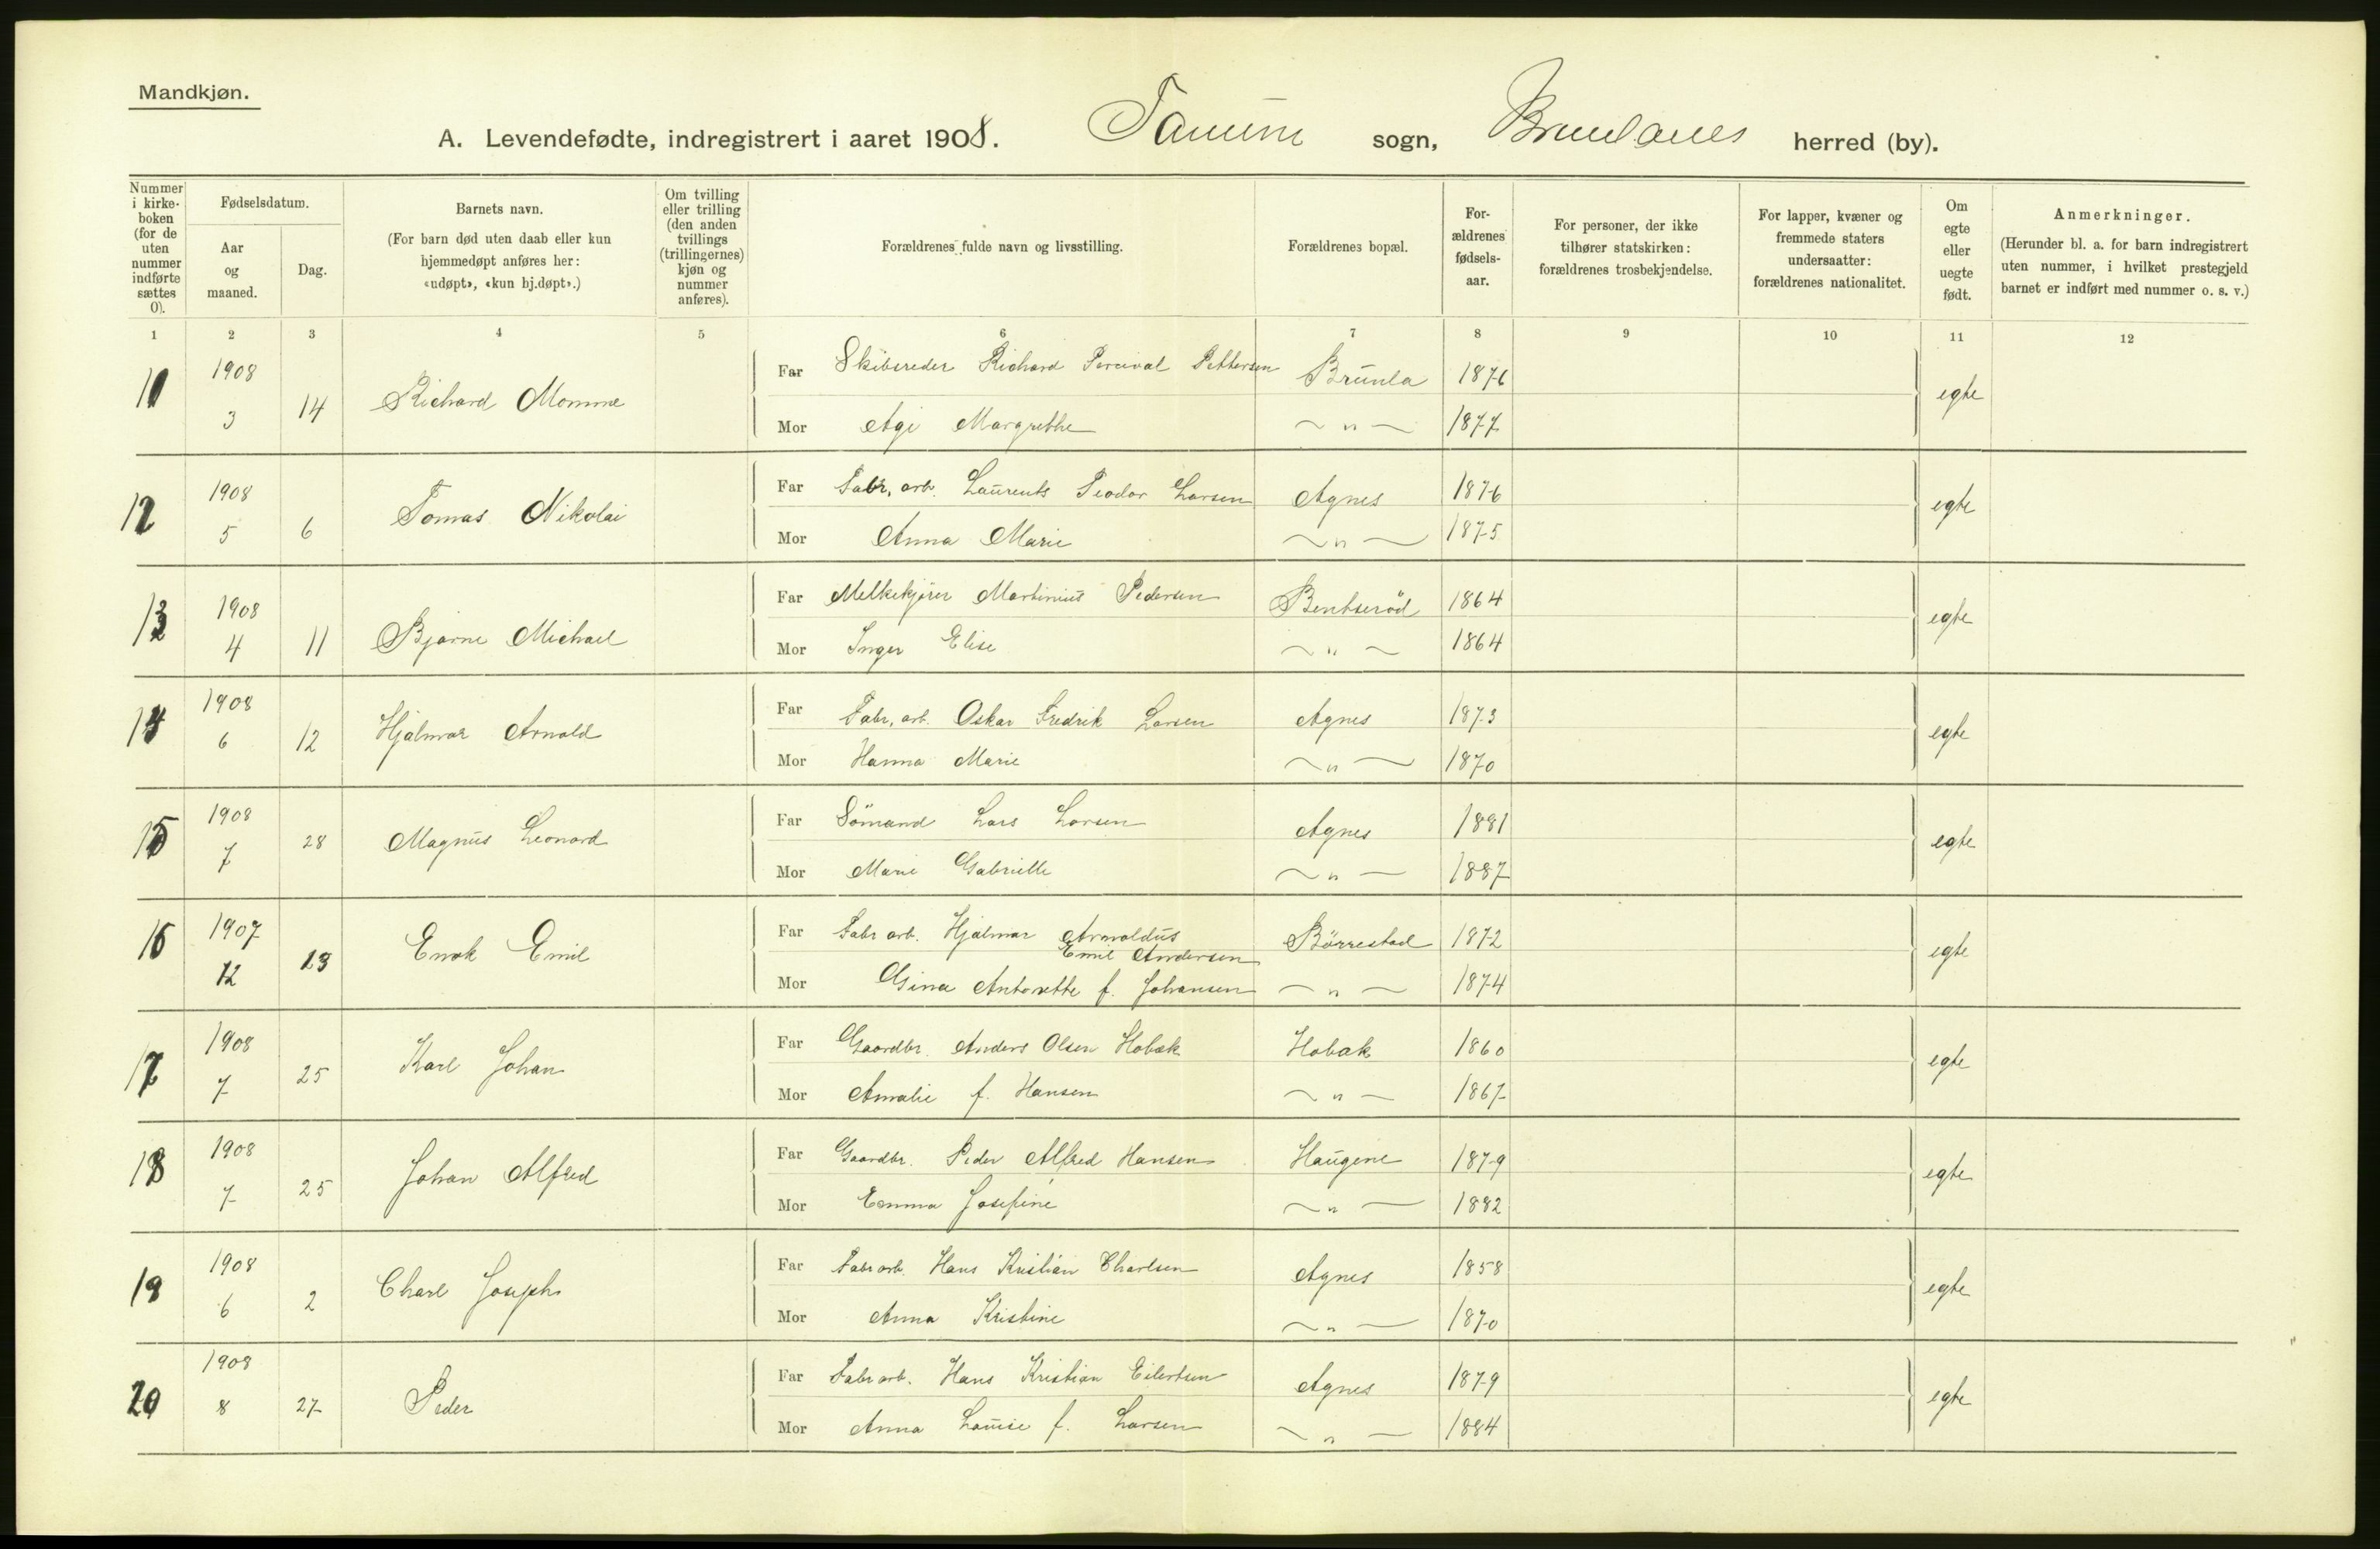 Mandkjøn.
A. Levendefødte, indregistrert i aaret 1908. Tanum sogn, Brunlanes herred (by).
Nummer i kirke-boken (for de uten nummer indførte sættes 0).
Fødselsdatum.
Aar og maaned.
Dag.
Barnets navn.
(For barn død uten daab eller kun hjemmedøpt anføres her: «udøpt», «kun hj.døpt».)
Om tvilling eller trilling (den anden tvillings (trillingernes) kjøn og nummer anføres).
Forældrenes fulde navn og livsstilling.
Forældrenes bopæl.
For-ældrenes fødsels-aar.
For personer, der ikke tilhører statskirken: forældrenes trosbekjendelse.
For lapper, kvæner og fremmede staters undersaatter: forældrenes nationalitet.
Om egte eller uegte født.
Anmerkninger.
(Herunder bl. a. for barn indregistrert uten nummer, i hvilket prestegjeld barnet er indført med nummer o. s. v.)
1 2 3 4 5 6 7 8 9 10 11 12
11 1908 3 14 Richard Momme
Far Skibsreder Richard Percival Pettersen Brunla 1876 egte
Mor Agi Margrethe „ 1877
12 1908 5 6 Tomas Nikolai
Far Fabr. arb. Laurents Teodor Larsen Agnes 1876 egte
Mor Anna Marie „ 1875
13 1908 4 11 Bjarne Michael
Far Melkekjører Martinius Pedersen Bentserød 1864 egte
Mor Inger Elise „ 1864
14 1908 6 12 Hjalmar Arnold
Far Fabr. arb. Oskar Fredrik Larsen Agnes 1873 egte
Mor Hanna Marie „ 1870
15 1908 7 28 Magnus Leonard
Far Sömand Lars Larsen Agnes 1881 egte
Mor Marie Gabrielle „ 1887
16 1907 12 13 Enok Emil
Far Fabr arb. Hjalmar Arnoldus Emil Andersen Börrestad 1872 egte
Mor Gina Antonette f. Johansen „ 1874
17 1908 7 25 Karl Johan
Far Gaardbr. Anders Olsen Hobæk Hobak 1860 egte
Mor Amalie f. Hansen „ 1867
18 1908 7 25 Johan Alfred
Far Gaardbr. Peder Alfred Hansen Haugene 1879 egte
Mor Emma Josefine „ 1882
19 1908 6 2 Charl Joseph
Far Fabr arb. Hans Kristian Charlsen Agnes 1858 egte
Mor Anna Kristine „ 1870
20 1908 8 27 Peder
Far Fabr arb. Hans Kristian Eilertsen Agnes 1879 egte
Mor Anna Louise f. Larsen „ 1884